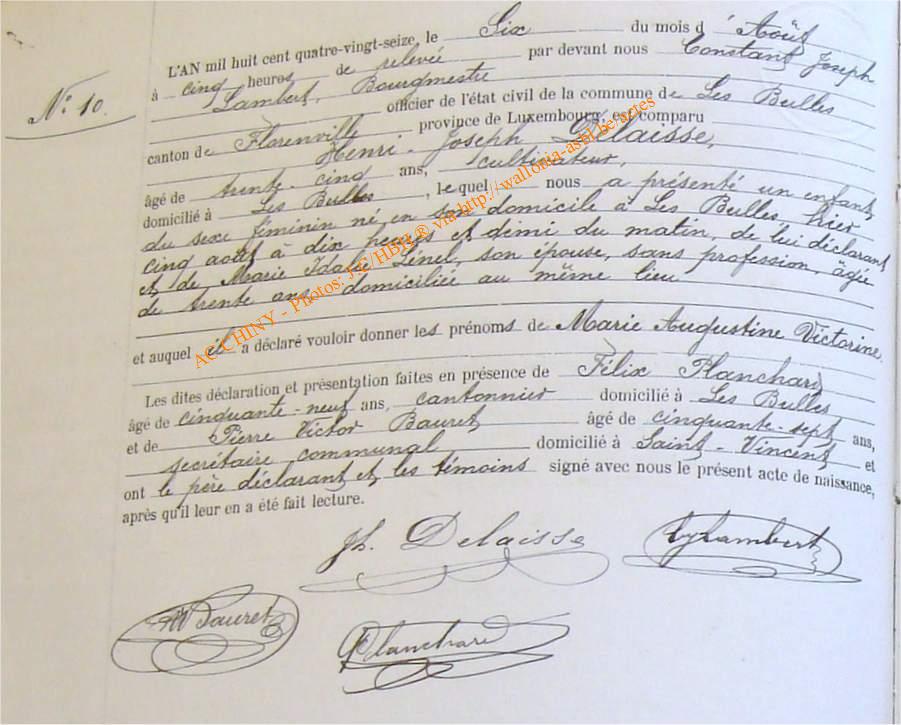 N: 10.
L'AN mil huit cent quatre-vingt-seize, le Six du mois d'Août
à cinq heures de relevée par devant nous Constant Joseph
Lambert, Bourgmestre officier de l'état civil de la commune de Les Bulles
canton de Florenville province de Luxembourg, est comparu
Henri-Joseph Delaisse,
âgé de trente-cinq ans, cultivateur,
domicilié à Les Bulles, lequel nous a présenté un enfant
du sexe féminin né en son domicile à Les Bulles hier
cinq août à dix heures et demi du matin, de lui déclarant
et de Marie Idalie Linel, son épouse, sans profession, âgée
de trente ans domiciliée au même lieu
et auquel il a déclaré vouloir donner les prénoms de Marie Augustine Victorine.
Les dites déclaration et présentation faites en présence de Félix Planchard
âgé de cinquante-neuf ans, cantonnier domicilié à Les Bulles
et de Pierre Victor Bauret âgé de cinquante-sept ans,
secrétaire communal domicilié à Saint-Vincent et
ont le père déclarant et les témoins signé avec nous le présent acte de naissance,
après qu'il leur en a été fait lecture.
Jh. Delaisse
Lambert
Bauret
Planchard
AC CHINY - Photos: JC/HBH ® via http://wallonia-asbl.be/actes